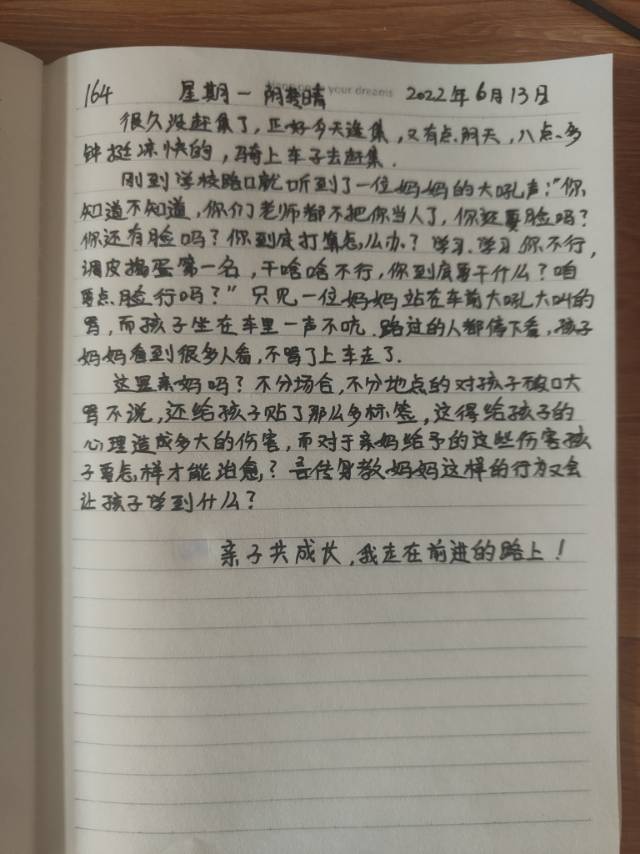 164 星期一 阴转晴 2022年6月13日
your dreams
很久没赶集了，正好今天逢集，又有点阴天，八点多
钟挺凉快的，骑上车子去赶集．
刚到学校路口就听到了一位妈妈的大吼声：“你
知道不知道，你们老师都不把你当人了，你还要脸吗？
你还有脸吗？你到底打算怎么办？学习、学习你不行，
调皮捣蛋第一名，干啥啥不行，你到底要干什么？咱
要点脸行吗？”只见一位妈妈站在车前大吼大叫的
骂，而孩子坐在车里一声不吭．路过的人都停下看，孩子
妈妈看到很多人看，不骂了上车走了．
这是亲妈吗？不分场合，不分地点的对孩子破口大
骂不说，还给孩子贴了那么多标签，这得给孩子的
心理造成多大的伤害，而对于亲妈给予的这些伤害孩
子要怎样才能治愈？言传身教妈妈这样的行为又会
让孩子学到什么？
亲子共成长，我走在前进的路上！